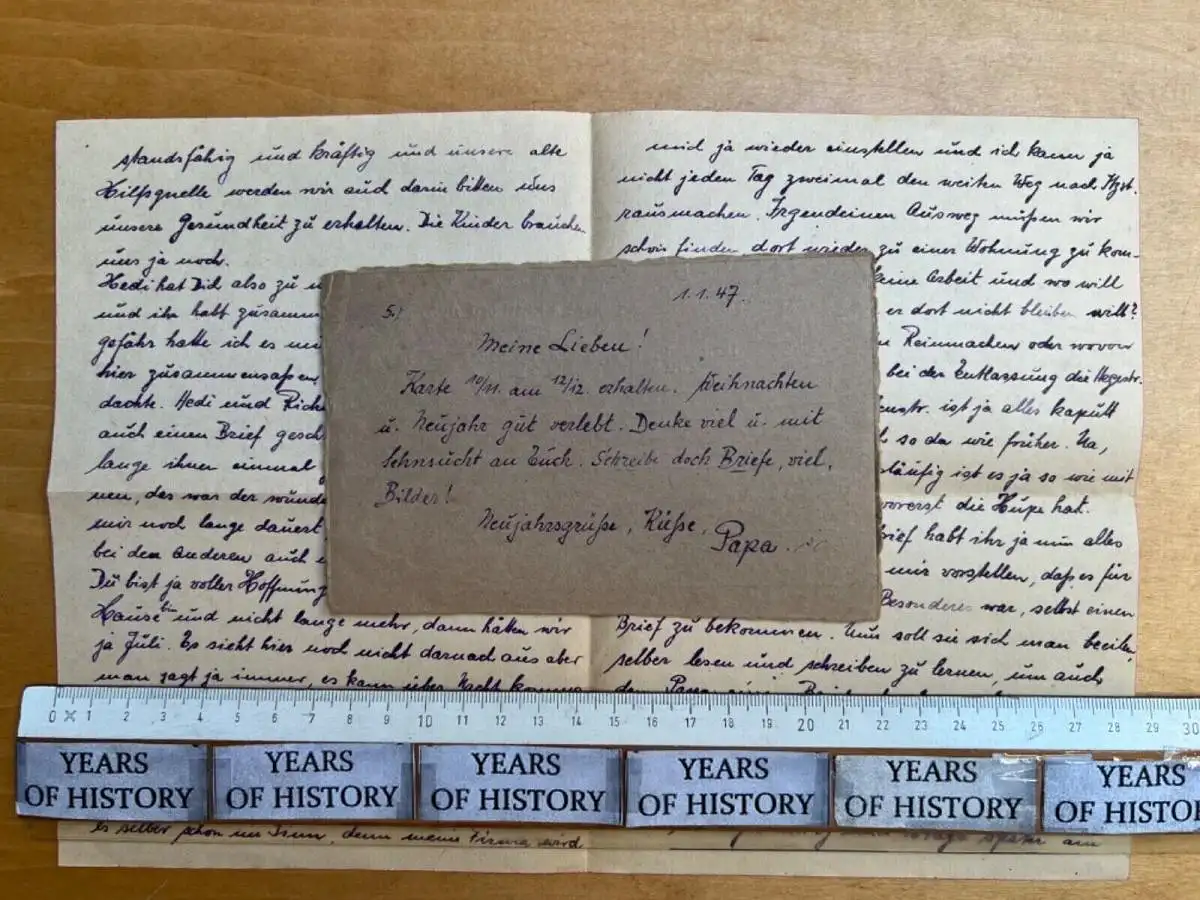 standsfähig und kräftig und unsere alte
Hilfsquelle werden wir auch darin bitten uns
unsere Gesundheit zu erhalten. Die Kinder brauchen
uns ja noch.
Hedi hat Dich also zu
und ihr habt zusamm
gefähr hatte ich es mi
hier zusammensaßen
dachte. Hedi und Rich
auch einen Brief gesch
lange ihnen einmal
nen, das war der wunde
mir noch lange dauert
bei den Anderen auch
Du bist ja voller Hoffnung
Hause bin und nicht lange mehr, dann hätten wir
ja Juli. Es sieht hier noch nicht darnach aus aber
man sagt ja immer, es kann über Nacht komme
es selber schon im Sinn, denn meine Firma wird
mich ja wieder einstellen und ich kann ja
nicht jeden Tag zweimal den weiten Weg nach Hgst.
rausmachen. Irgendeinen Ausweg müßen wir
schon finden dort wieder zu einer Wohnung zu kom-
keine Arbeit und wo will
er dort nicht bleiben will?
Reinmachen oder wovon
bei der Entlassung die Hegestr.
enstr. ist ja alles kaputt
so da wie früher. Na,
läufig ist es ja so wie mit
vorerst die Hupe hat.
rief habt ihr ja nun alles
mir vorstellen, daß es für
Besonderes war, selbst einen
Brief zu bekommen. Nun soll sie sich man beeilen
selber lesen und schreiben zu lernen, um auch
dem Papa einen Brief
später am
5.)
1.1.47.
Meine Lieben!
Karte 10/11. am 12/12. erhalten. Weihnachten
u. Neujahr gut verlebt. Denke viel u. mit
Sehnsucht an Euch. Schreibe doch Briefe, viel,
Bilder!
Neujahrsgrüße, Küße,
Papa.
0 1 2 3 4 5 6 7 8 9 10 11 12 13 14 15 16 17 18 19 20 21 22 23 24 25 26 27 28 29 30
YEARS OF HISTORY
YEARS OF HISTORY
YEARS OF HISTORY
YEARS OF HISTORY
YEARS OF HISTORY
YEARS OF HISTO